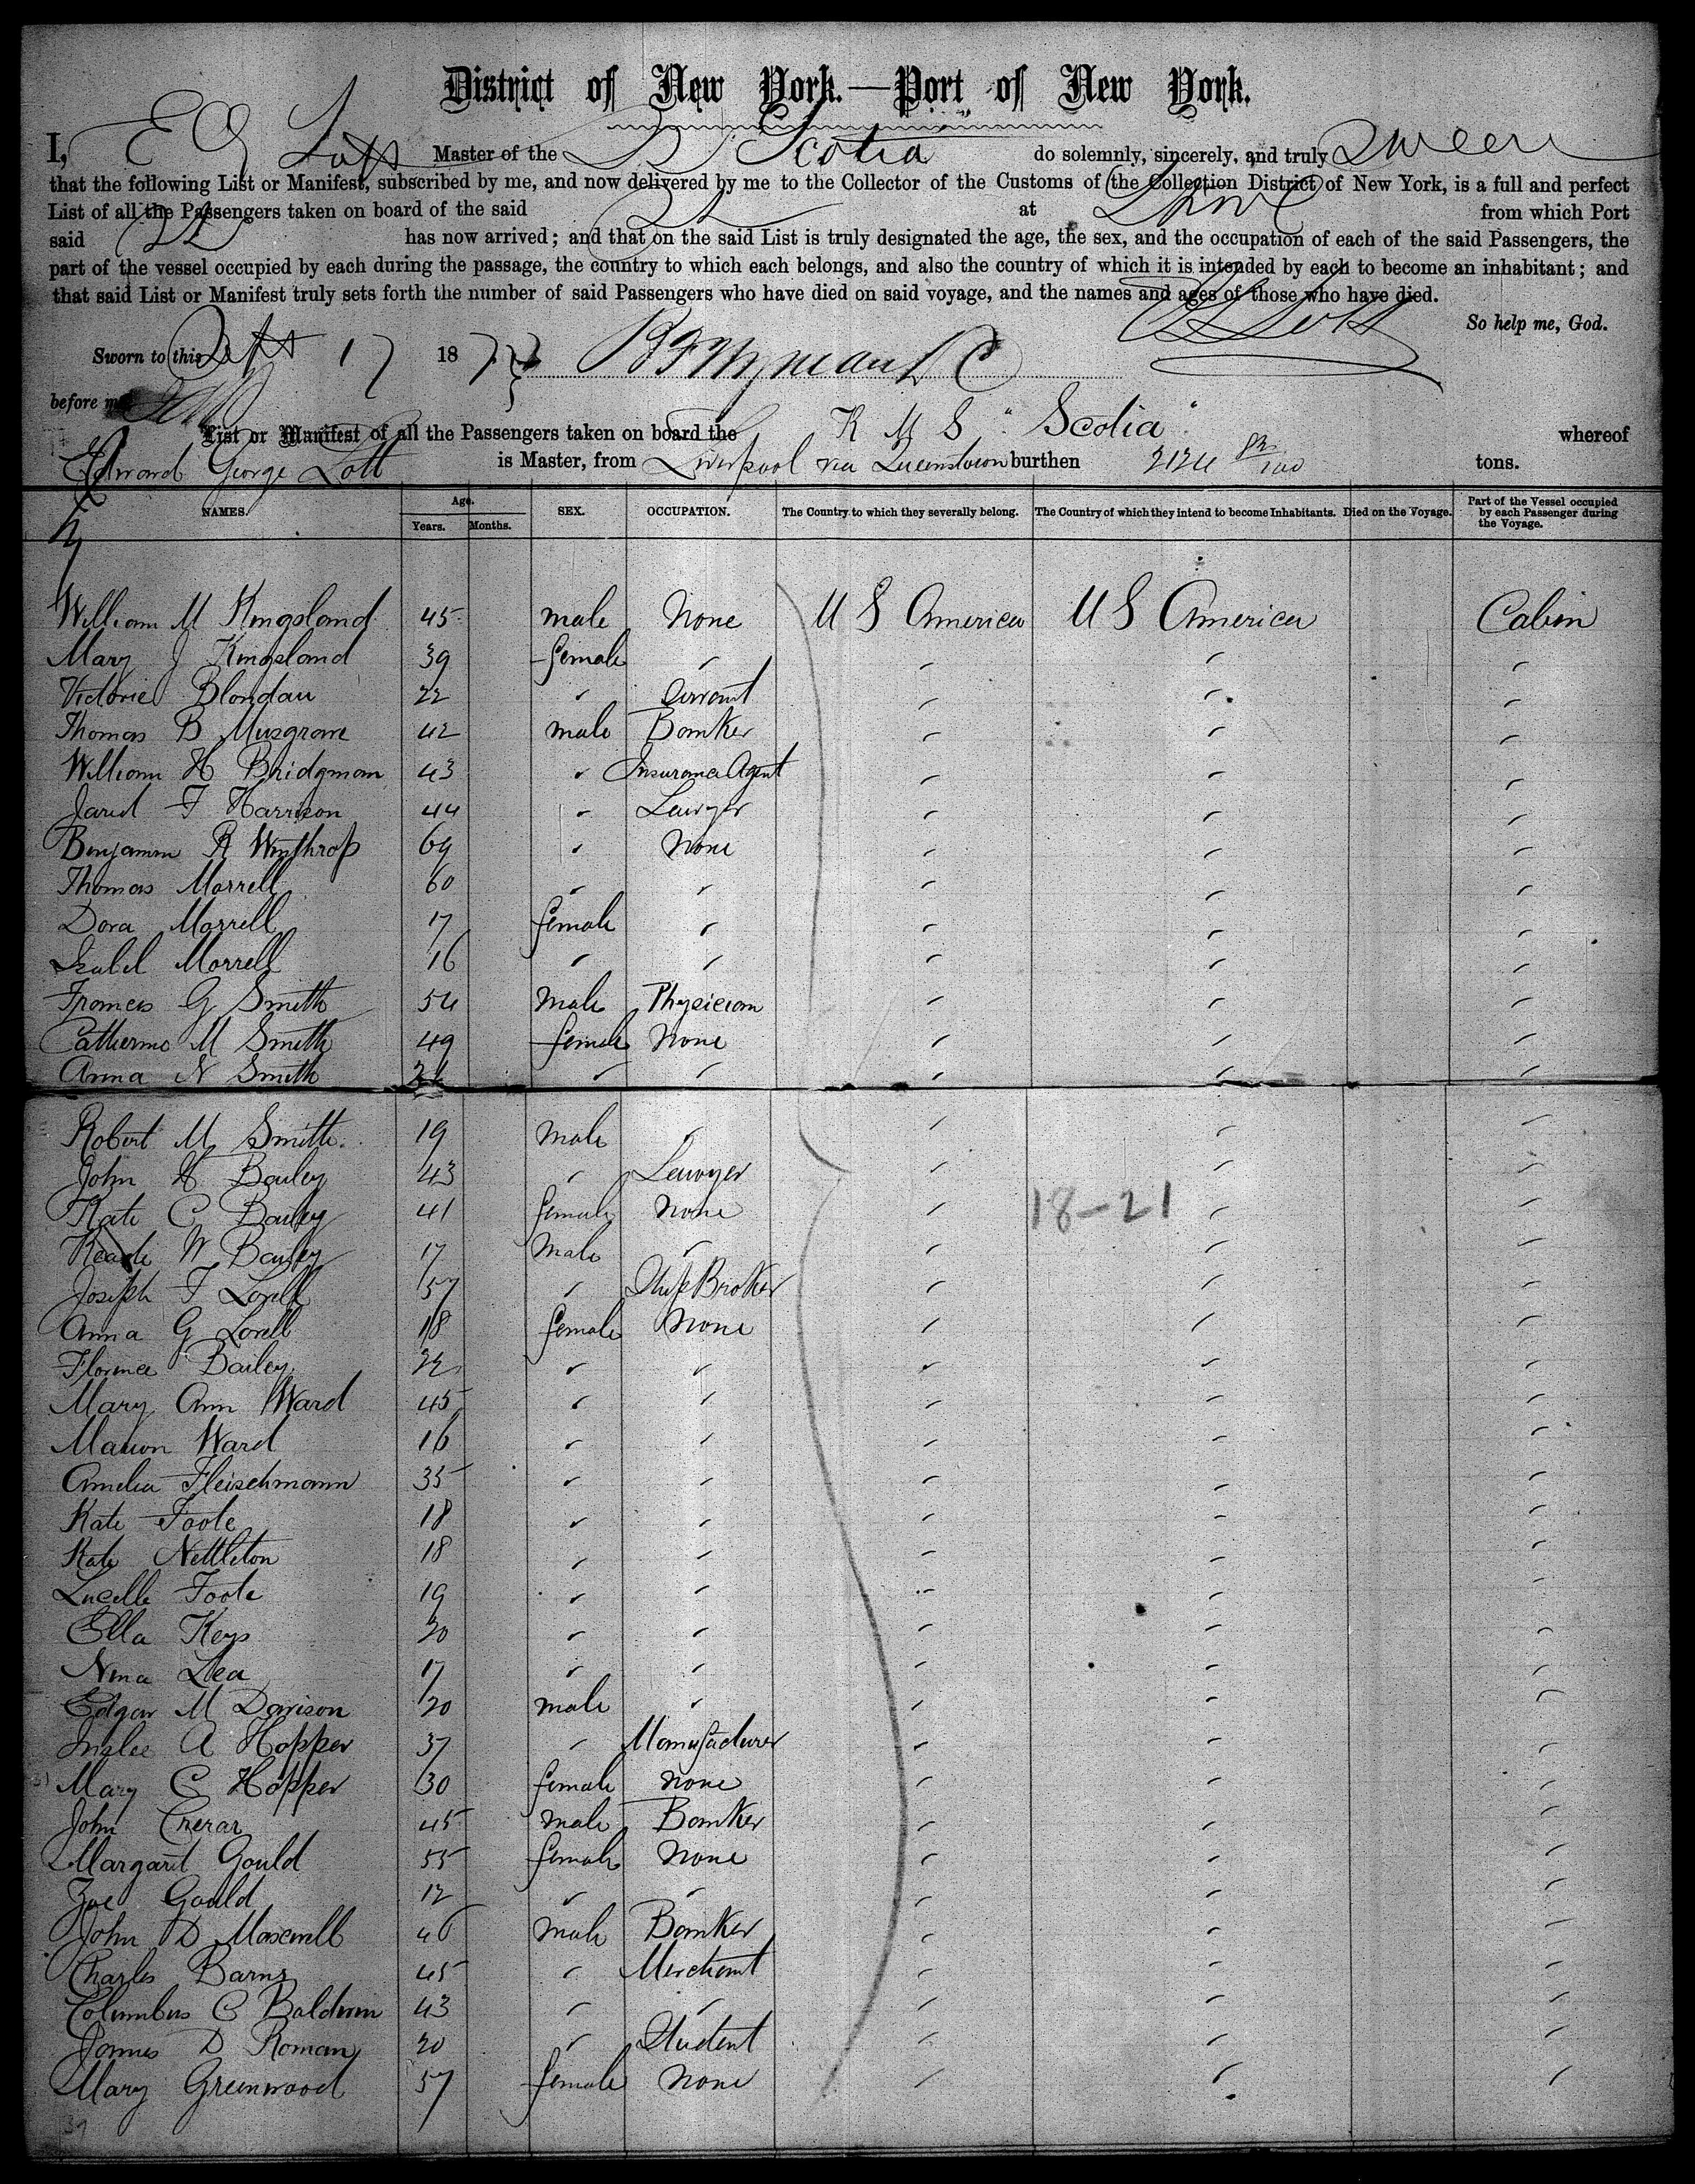 District of New York.—Port of New York.
I, E G Lott Master of the SS Scotia do solemnly, sincerely, and truly Swear
that the following List or Manifest, subscribed by me, and now delivered by me to the Collector of the Customs of the Collection District of New York, is a full and perfect
List of all the Passengers taken on board of the said SS at from which Port
said SS has now arrived; and that on the said List is truly designated the age, the sex, and the occupation of each of the said Passengers, the
part of the vessel occupied by each during the passage, the country to which each belongs, and also the country of which it is intended by each to become an inhabitant; and
that said List or Manifest truly sets forth the number of said Passengers who have died on said voyage, and the names and ages of those who have died.
So help me, God.
Sworn to this Sept 17 187
before me
List or Manifest of all the Passengers taken on board the R M S "Scotia" whereof
Edward George Lott is Master, from Liverpool via Queenstown burthen 2124 82/100 tons.
NAMES. Age. Years. Months. SEX. OCCUPATION. The Country to which they severally belong. The Country of which they intend to become Inhabitants. Died on the Voyage. Part of the Vessel occupied by each Passenger during the Voyage.
William M Kingsland 45 male None U S America U S America Cabin
Mary J Kingsland 39 female " " " "
Victorie Blondau 22 " Servant " " "
Thomas B Musgrave 42 male Banker " " "
William H Bridgman 43 " Insurance Agent " " "
Jared F Harrison 44 " Lawyer " " "
Benjamin R Winthrop 69 " None " " "
Thomas Morrell 60 " " " " "
Dora Morrell 17 female " " " "
Isabel Morrell 16 " " " " "
Francis G Smith 54 Male Physician " " "
Catherine M Smith 49 female None " " "
Anna N Smith " " " " "
Robert M Smith 19 Male " " " "
John H Bailey 43 " Lawyer " " "
Kate C Bailey 41 female None 18-21 " " "
W Bailey 17 Male " " " "
Joseph F Lovell 57 " Ship Broker " " "
Anna G Lovell 18 female None " " "
Florence Bailey 22 " " " " "
Mary Ann Ward 45 " " " " "
Marion Ward 16 " " " " "
Amelia Fleischmann 35 " " " " "
Kate Foote 18 " " " " "
Kate Nettleton 18 " " " " "
Lucelle Foote 19 " " " " "
Ella Keys 20 " " " " "
Nina Lea 17 " " " " "
Edgar M Davison 20 male " " " "
Inslee A Hopper 37 " Manufacturer " " "
Mary C Hopper 30 female None " " "
John Crerar 45 male Banker " " "
Margaret Gould 55 female None " " "
Zoe Gould 12 " " " " "
John D Maxwell 46 male Banker " " "
Charles Barnz 45 " Merchant " " "
Columbus C Baldwin 43 " " " " "
James D Roman 20 " Student " " "
Mary Greenwood 57 female None " " "
39